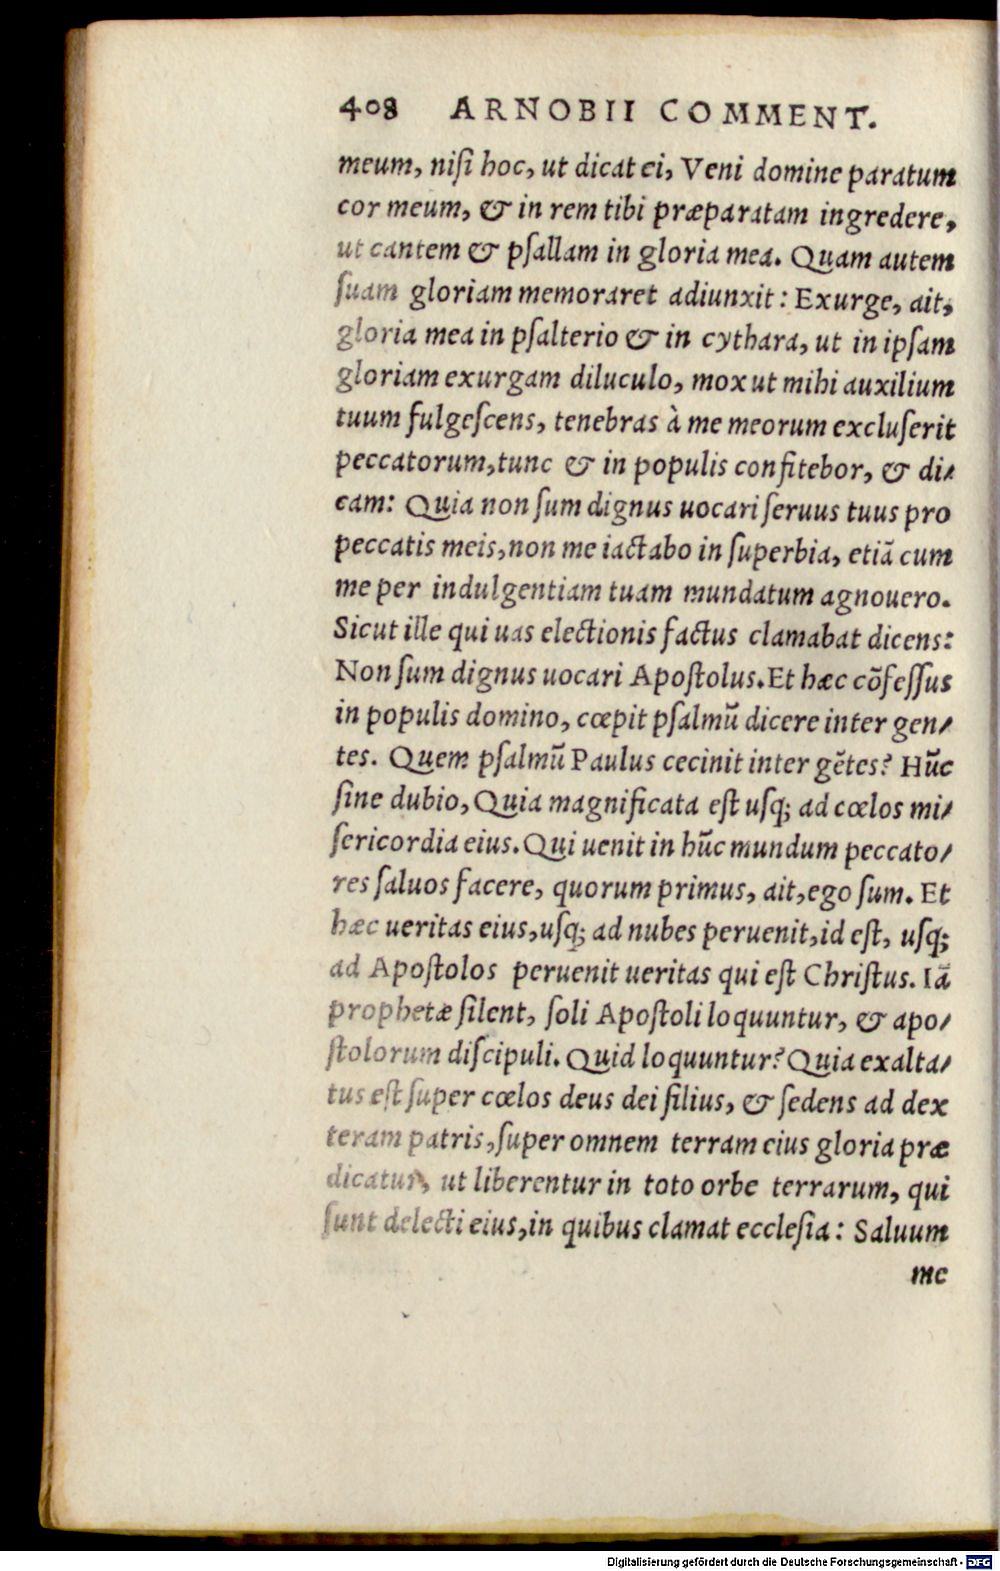 408 ARNOBII COMMENT.
meum, niſi hoc, ut dicat ei, Veni domine paratum
cor meum, & in rem tibi præparatam ingredere,
ut cantem & pſallam in gloria mea. Quam autem
ſuam gloriam memoraret adiunxit: Exurge, ait,
gloria mea in pſalterio & in cythara, ut in ipſam
gloriam exurgam diluculo, mox ut mihi auxilium
tuum fulgeſcens, tenebras à me meorum excluſerit
peccatorum, tunc & in populis confitebor, & di⸗
cam: Quia non ſum dignus uocari ſeruus tuus pro
peccatis meis, non me iactabo in ſuperbia, etiã cum
me per indulgentiam tuam mundatum agnouero.
Sicut ille qui uas electionis factus clamabat dicens:
Non ſum dignus uocari Apoſtolus. Et hæc cõfeſſus
in populis domino, cœpit pſalmũ dicere inter gen⸗
tes. Quem pſalmũ Paulus cecinit inter gẽtes? Hũc
ſine dubio, Quia magnificata eſt uſq; ad cœlos mi⸗
ſericordia eius. Qui uenit in hũc mundum peccato⸗
res ſaluos facere, quorum primus, ait, ego ſum. Et
hæc ueritas eius, uſq; ad nubes peruenit, id eſt, uſq;
ad Apoſtolos peruenit ueritas qui eſt Chriſtus. Iã
prophetæ ſilent, ſoli Apoſtoli loquuntur, & apo⸗
ſtolorum diſcipuli. Quid loquuntur? Quia exalta⸗
tus eſt ſuper cœlos deus dei filius, & ſedens ad dex
teram patris, ſuper omnem terram eius gloria præ
dicatur, ut liberentur in toto orbe terrarum, qui
ſunt delecti eius, in quibus clamat eccleſia: Saluum
me
Digitalisierung gefördert durch die Deutsche Forschungsgemeinschaft - DFG